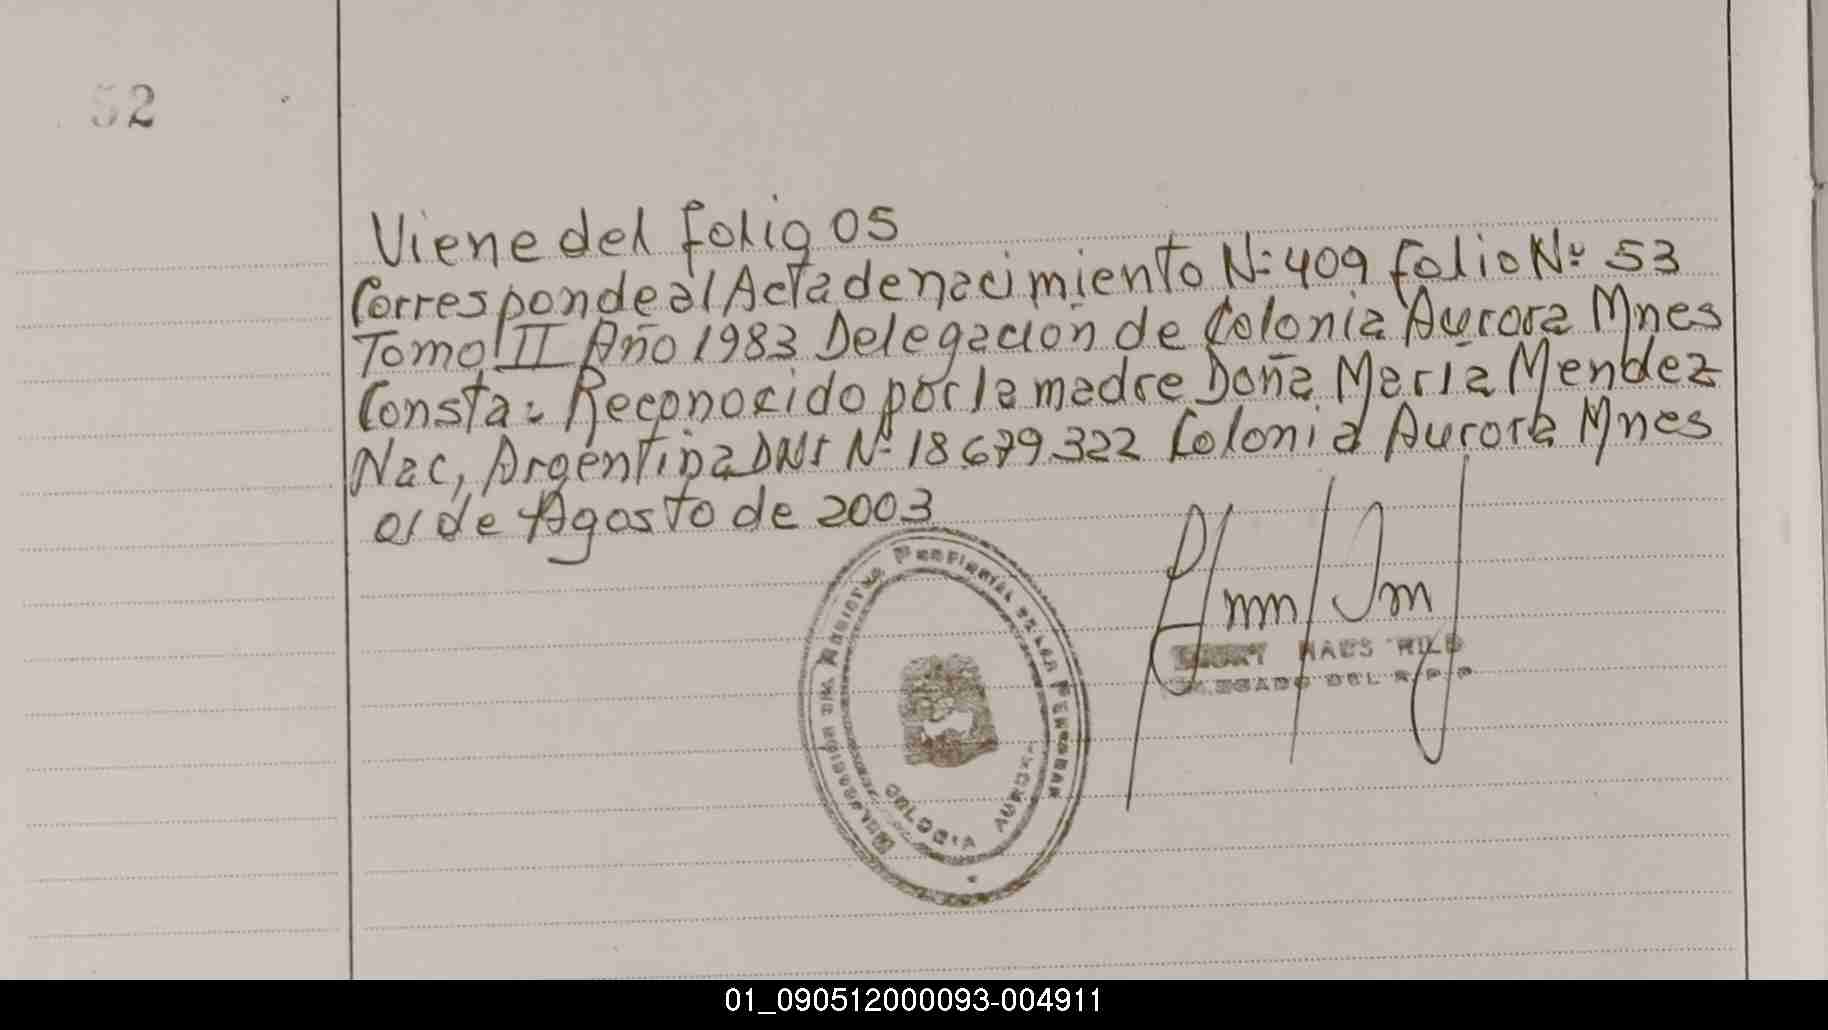 52
Viene del folio 05
Corresponde al Acta de nacimiento Nº 409 folio Nº 53
Tomo II Año 1983 Delegacion de Colonia Aurora Mnes
Consta: Reconocido por la madre Doña Maria Mendez
Nac, Argentina DNI Nº 18679.322 Colonia Aurora Mnes
01 de Agosto de 2003
DEL R.P.P
COLONIA AURORA
01_090512000093-004911